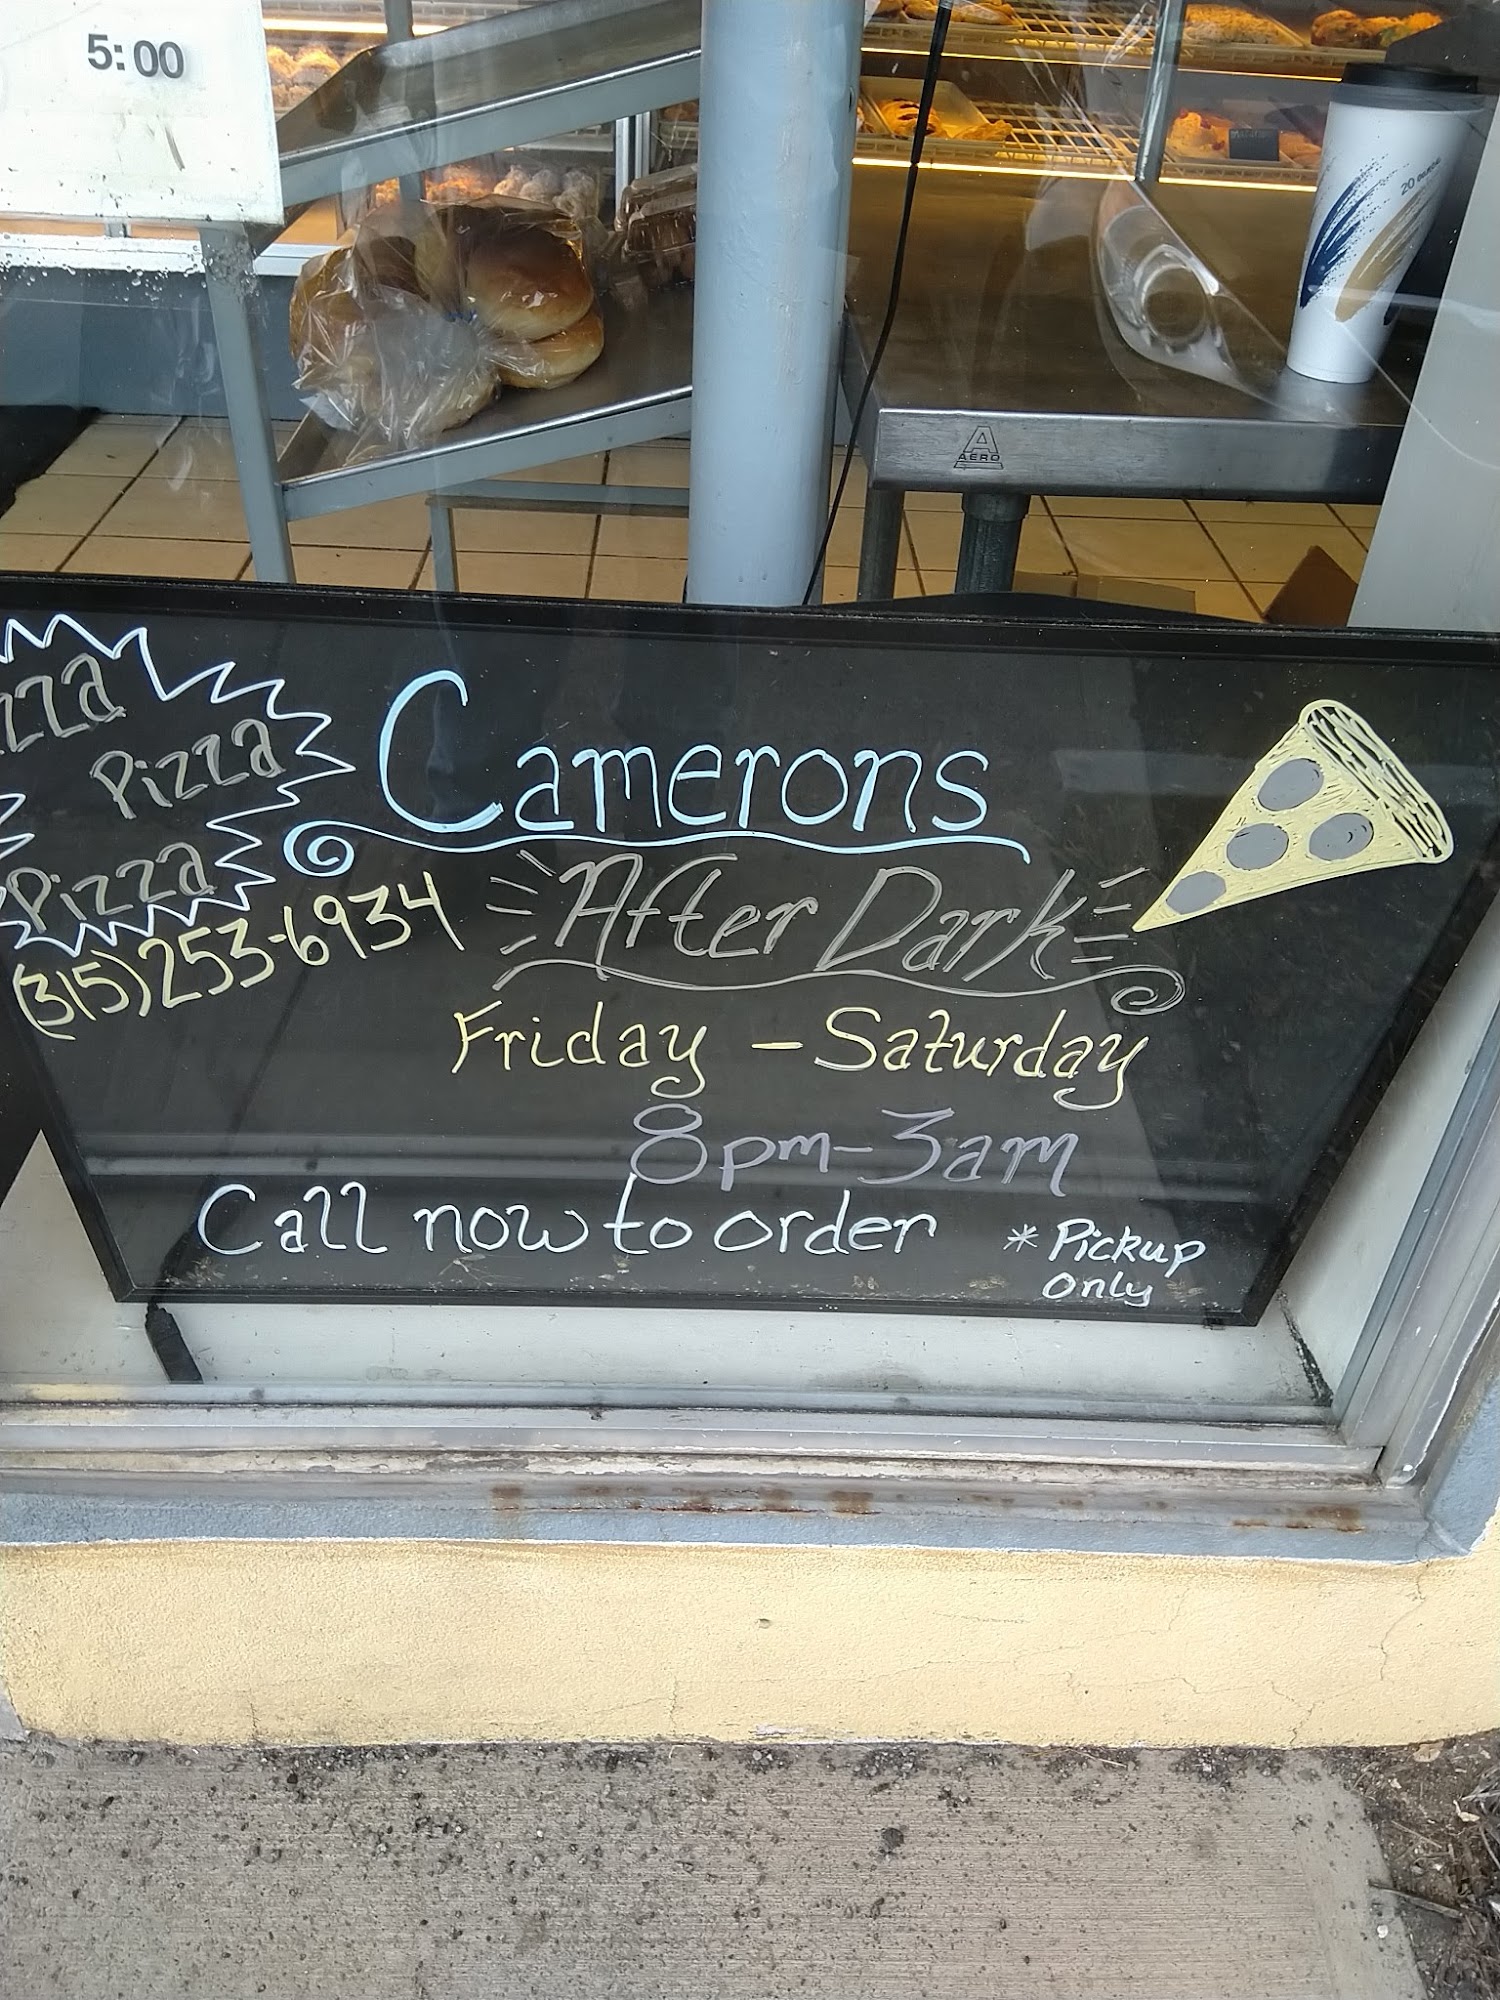 5:00
20 ounce
A
AERO
Pizza
Pizza
(315)253-6934
Camerons
After Dark
Friday - Saturday
8pm-3am
Call now to order
* Pickup
Only